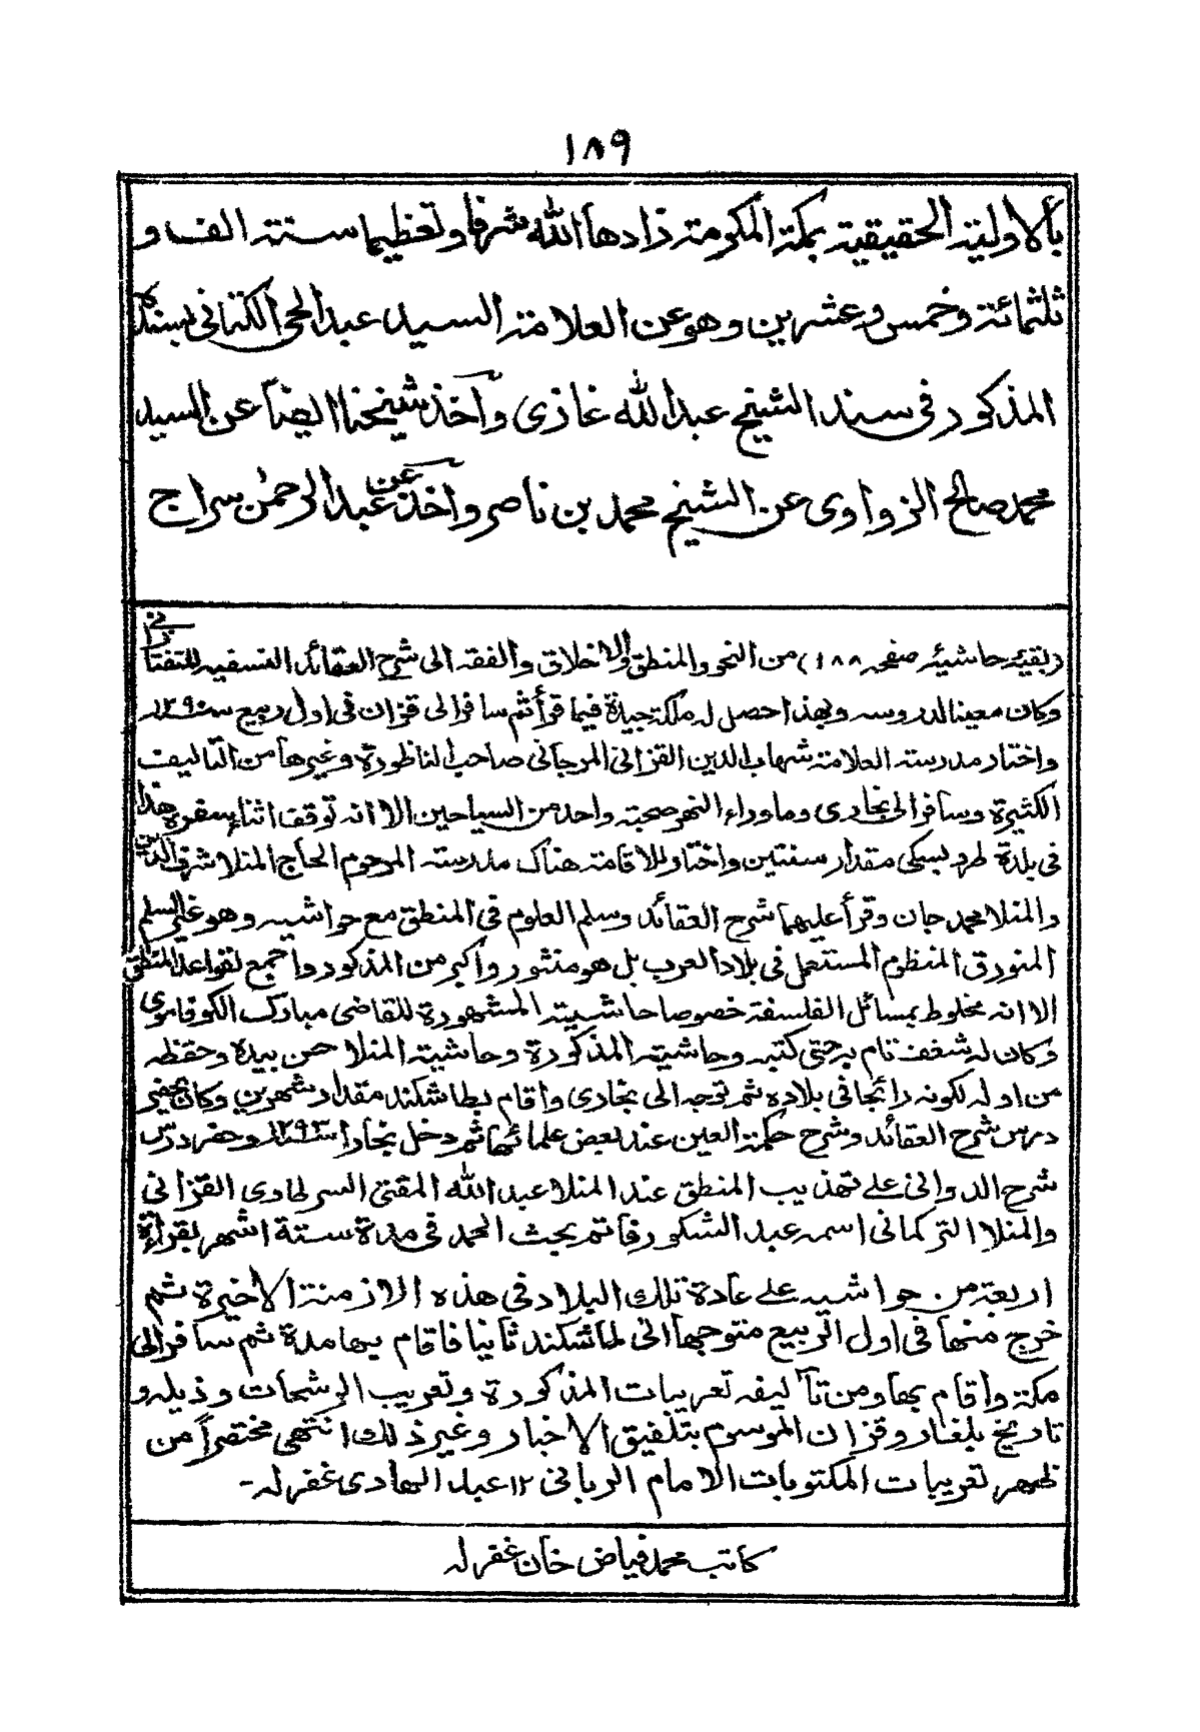 ١٨٩
بألاولية الحقيقية بمكة المكرمة زادها الله شرفا وتعظيما سنة الف و
ثلثمائة وخمس وعشرين وهو عن العلامة السيد عبد الحى الكتانى بسنده
المذكور فى سند الشيخ عبد الله غازى وآخذ شيخنا ايضاً عن السيد
محمد صالح الزواوى عن الشيخ محمد بن ناصر وآخذ عن عبد الرحمٰن سراج
(بقيۀ حاشيۀ صفحہ ١٨٨) من النحو والمنطق والاخلاق والفقہ الى شرح العقائد النسفيہ للتفتازانى
وكان معينا لدروسہ وبهذا حصل لہ ملكة جيدة فيما قرأ ثم سافر الى قزان فى اول ربيع سنہ ١٢٩٠
واختار مدرسة العلامة شهاب الدين القزانى المرجانى صاحب الناظورة وغيرها من التأليف
الكثيرة وسافر الى بخارى وما وراء النهر صحبة واحد من السياحين الا انہ توقف اثناء سفره هذا
فى بلدة طرويسكى مقدار سنتين واختار للاقامة هناك مدرسة المرحوم الحاج المنلا شرف الدين
والمنلا محمد جان وقرأ عليهما شرح العقائد وسلم العلوم فى المنطق مع حواشيہ وهو غير السلم
المنورق المنظوم المستعمل فى بلاد العرب بل هو منثور واكبر من المذكور واجمع لقواعد المنطق
الا انہ مخلوط بمسائل الفلسفة خصوصا حاشيتہ المشهورة للقاضى مبارك الكوفاموى
وكان لہ شغف تام برحتى كتبہ وحاشيتہ المذكورة وحاشية المنلا حسن بيده وحفظہ
من اولہ لكونہ رائجا فى بلاده ثم توجہ الى بخارى واقام بطاشكند مقدار شهرين وكان يحضر
درس شرح العقائد وشرح حكمة العين عند بعض علمائها ثم دخل بخارا سنہ ١٢٩٣ وحضر درس
شرح الدوانى على تهذيب المنطق عند المنلا عبد الله المفتى السرطاوى القزانى
والمنلا التركمانى اسمہ عبد الشكور فاتم بحث الحمد فى مدة ستة اشهر بقراءة
اربعة من حواشيہ على عادة تلك البلاد فى هذه الازمنة الاخيرة ثم
خرج منها فى اول الربيع متوجها الى طاشكند ثانيا فاقام بها مدة ثم سافر الى
مكة واقام بها ومن تآليفہ تعريبات المذكورة وتعريب الرشحات وذيلہ و
تاريخ بلغار وقزان الموسوم بتلفيق الاخبار وغير ذلك انتهى مختصراً من
ظهر تعريبات المكتوبات الامام الربانى ١٢ عبد الهادى غفر لہ۔
كاتب محمد فياض خان غفر لہ